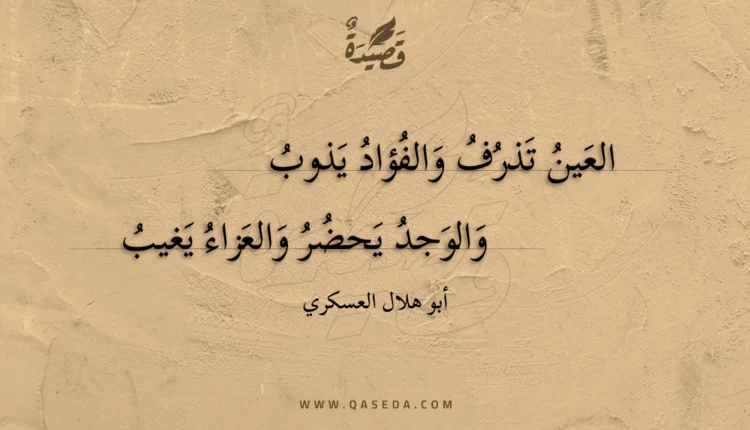 قَصِيدَةٌ
العَينُ تَذرُفُ وَالفُؤادُ يَذوبُ
وَالوَجدُ يَحضُرُ وَالعَزاءُ يَغيبُ
أبو هلال العسكري
WWW.QASEDA.COM